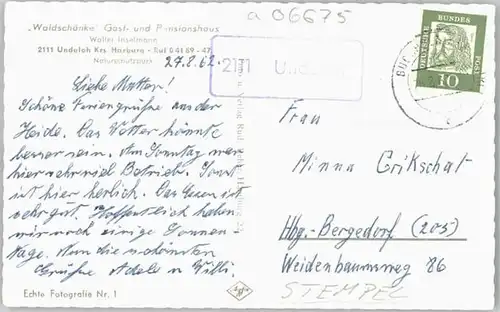 a 06675
„Waldschänke" Gast- und Pensionshaus
Walter Inselmann
2111 Undeloh Krs. Harburg - Ruf 04189 - 47
Naturschutzpark
27.8.62.
2111 Undeloh
DEUTSCHE BUNDESPOST
10
Liebe Mutter!
Schöne Feriengrüsse aus der
Heide. Das Wetter könnte
besser sein. Am Sonntag war
hier sehr viel Betrieb. Sonst
ist hier herlich. Das Essen ist
sehr gut. Hoffentlich haben
wir noch einige Sonnen-
tage. Nun die schönsten
Grüsse Adele u. Willi.
Echte Fotografie Nr. 1
Frau
Minna Grikschat
Hbg.-Bergedorf (205)
Weidenbaumsweg 86
STEMPEL